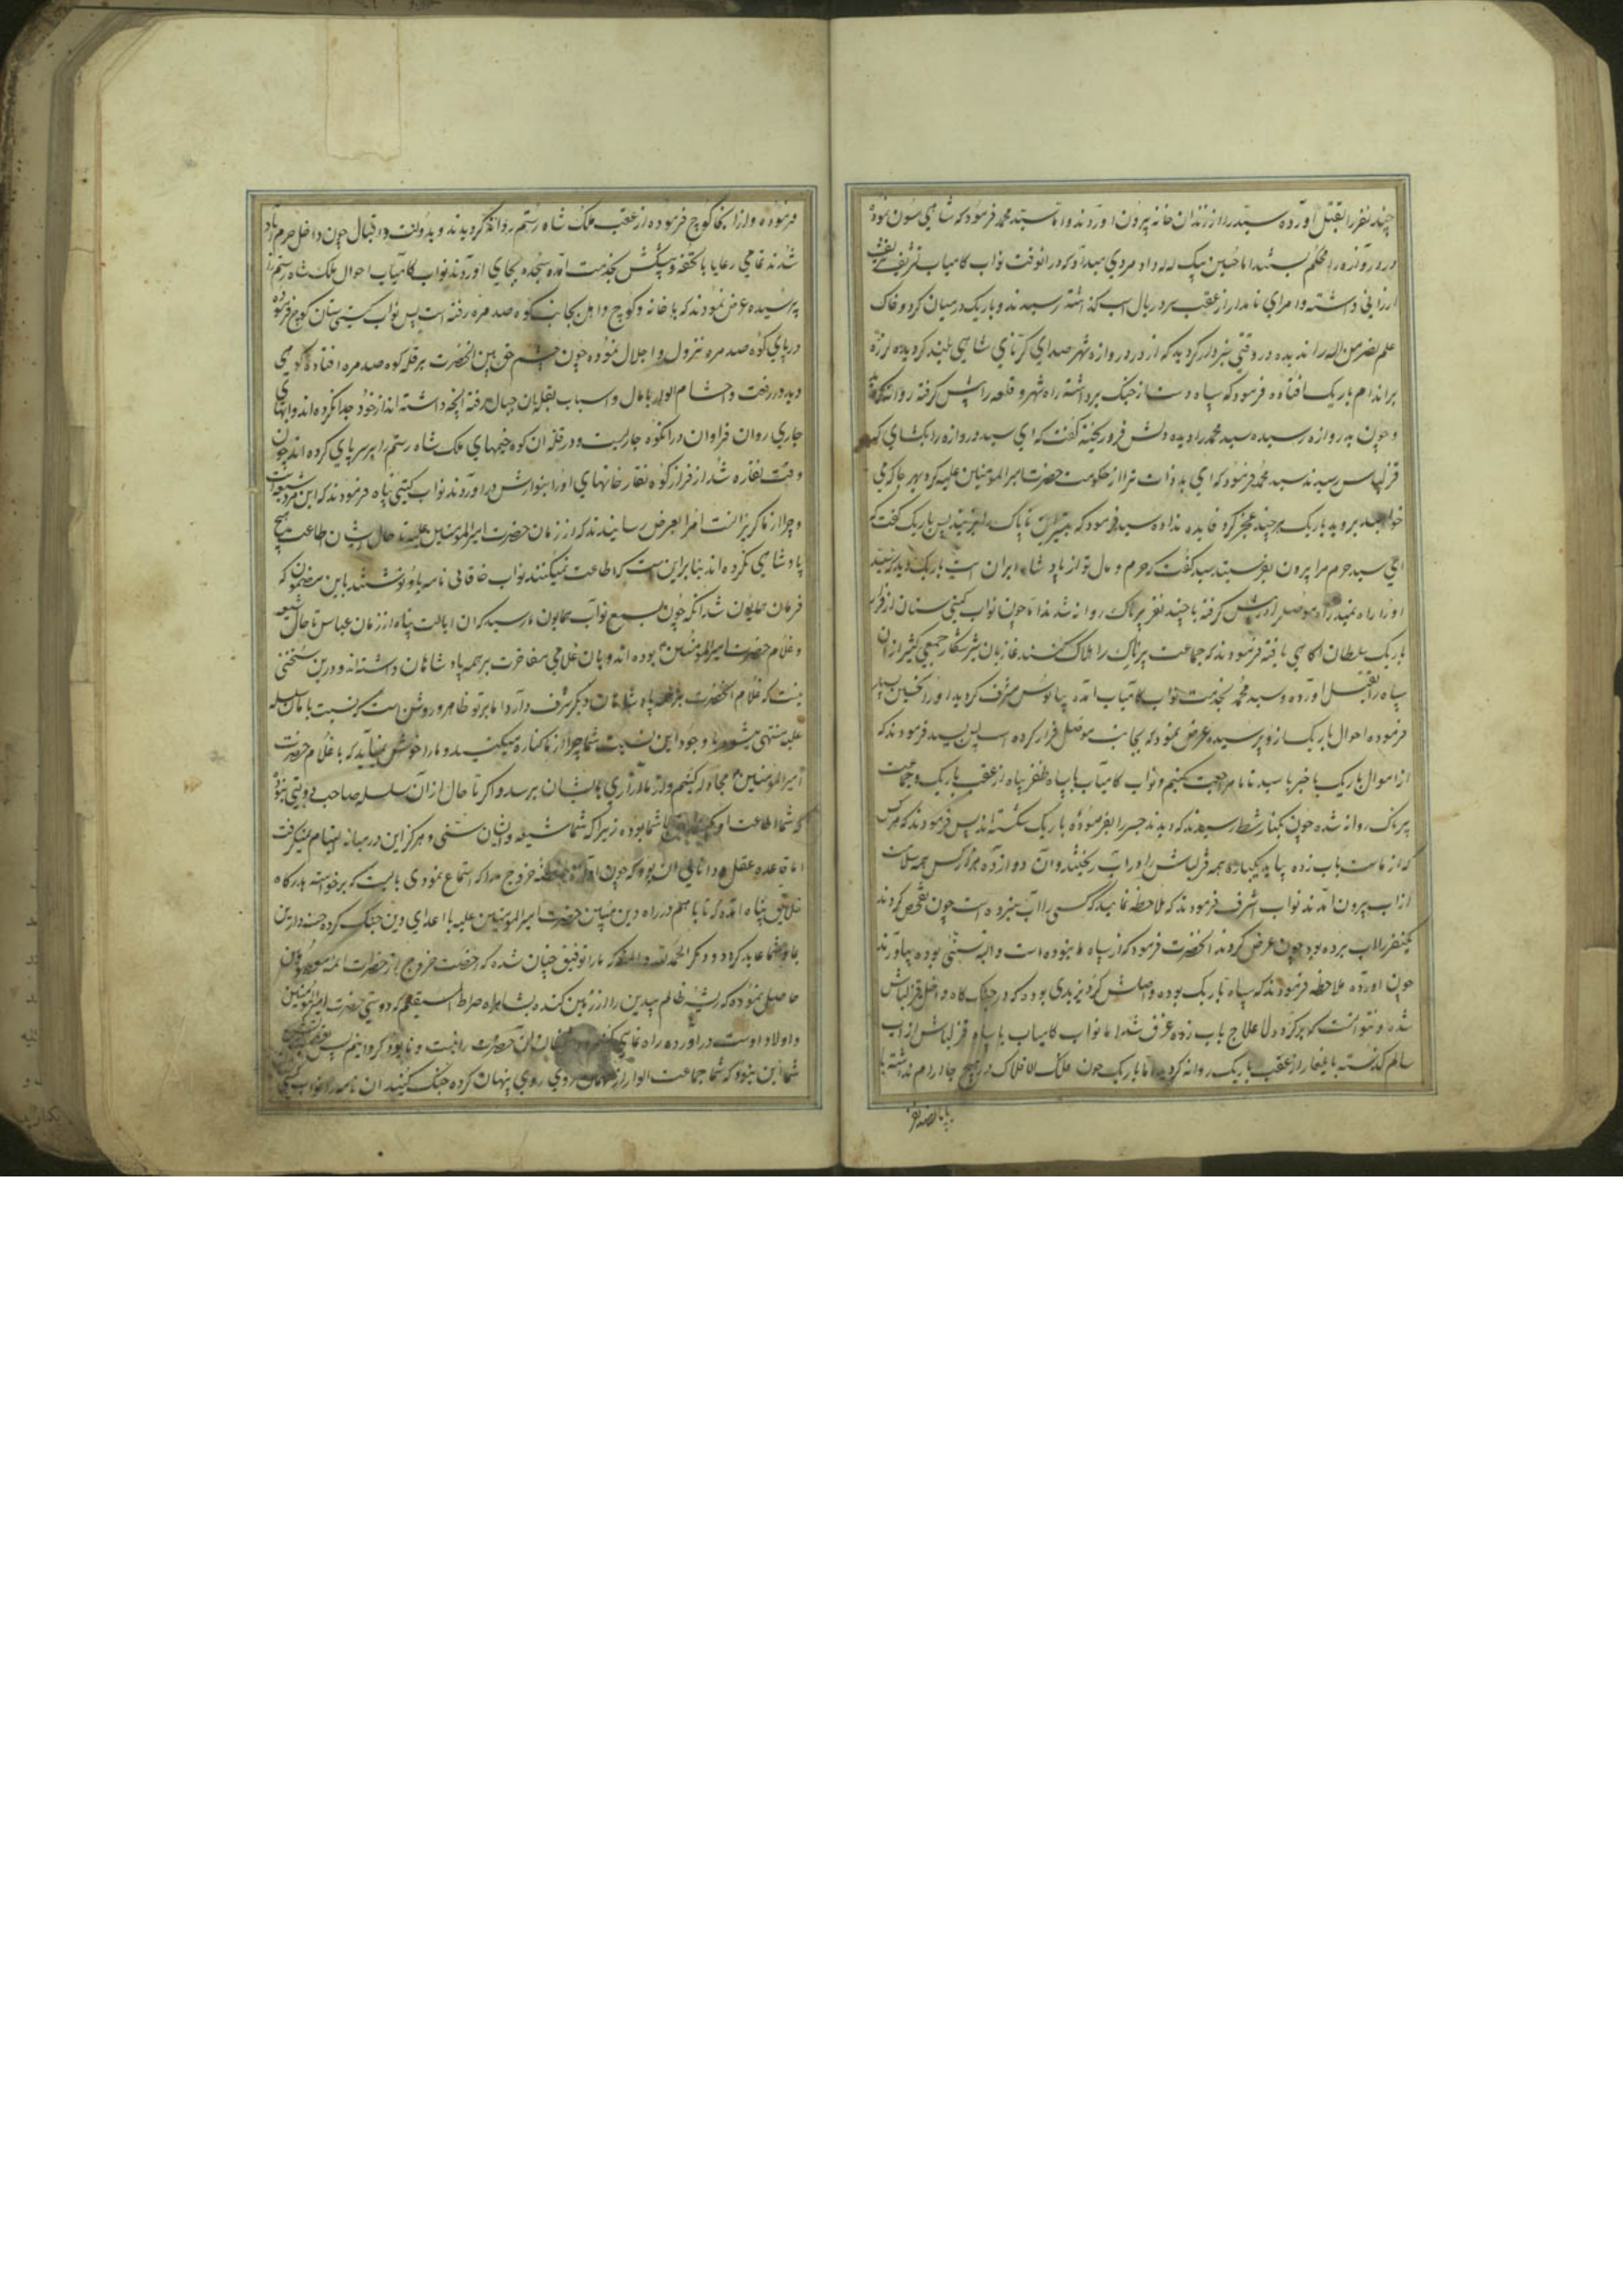 چند نفر را بقتل آورده سید را از زندان خانه بیرون اوردند و اما سید محمد فرمود که شاهی سون نموده
در دروازه را محکم بستند اما حسین بیک لله داد مردی میداد که در آنوقت نواب کامیاب تشریف
ارزانی داشته و امرای نامدار از عقب سر در یال اسب گذاشته رسیدند و باریک در میان کرد و خاک
علم نصر من الله را ندیده در وقتی خبردار کردید که از در دروازه شهر صدای کرنای شاهی بلند کردیده لرزه
بر اندام باریک افتاده فرمود که سپاه دست از جنک برداشته راه شهر و قلعه را پیش کرفته روانه
و چون به روازه رسیده سید محمد را دیده دلش فرو ریخته کفت که ای سید دروازه را بکشای که
قزلباس رسیدند سید محمد فرمود که ای بد ذات ترا از حکومت حضرت امیر المومنین علیه کره بهر جا که می
خواهید بروید باریک هر چند عجز کرد فایده نداد سید فرمود که بتیرش ناپاک را بزنید پس باریک کفت که
ای سید حرم مرا بیرون بفرست سید کفت که حرم و مال تو از پادشاه ایران است باریک دید که سید
او را راه نمیدهد راه موصل را در پیش کرفته با چند نفر پرناک روانه شدند اما چون نواب کیتی ستان از فرار
باریک سلطان اکاهی یافته فرمودند که جماعت پرناک را هلاک کنند غازیان شیر شکار جمعی کثیر از ان
سپاه را بقتل اورده و سید محمد بخدمت نواب کامیاب آمده بپابوس مشرف کردید او را تحسین بسیار
فرموده احوال باریک از و پرسیده عرض نمود که بجانب موصل فرار کرده است پس سید فرمودند که
از اموال باریک با خبر باشید تا ما مراجعت کنیم و نواب کامیاب با سپاه ظفر پناه از عقب باریک و جماعت
پرناک روانه شده چون بکنار شط رسیدند که دیدند جسر را بفرموده باریک شکسته اند پس فرمودند که هر کس
که از ماست باب زده بیاید یکباره همه قزلباش را در آب ریختند و آن دوازده هزار کس همه سلامت
از اب بیرون آمدند نواب اشرف فرمودند که ملاحظه نمایید که کسی را آب نبرده است چون تفحص کردند
یکنفر را اب برده بود چون عرض کردند انحضرت فرمود که از سپاه ما نبوده است و البته سنی بوده بیاورند
چون اورده ملاحظه فرمودند که سپاه باریک بوده و اصلش کرد یزیدی بوده که در جنک کاه داخل قزلباش
شده و نتوانست که برکردد لا علاج باب زده غرق شد اما نواب کامیاب با سپاه قزلباش از اب
سالم کذشته بایلغار از عقب باریک روانه کردید اما باریک چون ملک الافلاک در هیچ جا آرام نداشته با
فرموده و از انجا کوچ فرموده از عقب ملک شاه رستم روانه کردیدند و بدولت و اقبال چون داخل خرم آباد
شدند تمامی رعایا با تحفه و پیشکش بخدمت آمده سجده بجای اوردند نواب کامیاب احوال ملک شاه رستم را
پرسیده عرض نمودند که با خانه و کوچ و اهل بجانب کوه صدمره رفته است پس نواب کیتی ستان کوچ فرموده
در پای کوه صدمره نزول و اجلال نموده چون چشم حق بین انحضرت بر قله کوه صدمره افتاد کوهی
دید در رفعت و احشام الوار با مال و اسباب بقله ان جبال رفته انچه داشته اند از خود جدا نکرده اند و ابهای
جاری روان فراوان در انکوه جاریست و در قله ان کوه خیمهای ملک شاه رستم را بر سر پای کرده اند چون
وقت نقاره شد از فراز کوه نقار خانهای او را بنوازش در اوردند نواب کیتی پناه فرمودند که این مرد شیعه است
و چرا از ما کریزانست امرا بعرض رسانیدند که از زمان حضرت امیر المومنین علیه تا حال ایشان اطاعت هیچ
پادشاهی نکرده اند بنا براین است که اطاعت نمیکنند نواب خاقانی نامه باو نوشتند باین مضمون که
فرمان همایون شد انکه چون بسمع نواب همایون ما رسید که ان ایالت پناه از زمان عباس تا حال شیعه
و غلام حضرت امیر المومنین بوده اند و بان غلامی مفاخرت بر همه پادشاهان داشته اند و درین سخنی
نیست که غلام انحضرت بر همه پادشاهان دیکر شرف دارد اما بر تو ظاهر و روشن است که نسبت ما بان سلسله
علیه منتهی میشود با وجود این نسبت شما چرا از ما کناره میکنید و ما را خوش نمیآید که با غلام حضرت
امیر المومنین مجادله کنیم و از ما ازاری بایشان برسد و اکر تا حال از آن سلسله صاحب دولتی نبوده
که شما اطاعت او کنید شما بوده زیرا که شما شیعه و ایشان سنی و هرکز این در میانه التیام نمیکرفت
اما قاعده عقل و دانایی ان بود که چون خروج ما را که استماع نمودی بایست که برخواسته بدرکاه
خلایق پناه آمده که تا با هم در راه دین مبین حضرت امیر المومنین علیه با اعدای دین جنک کرده حسنه دارین
بما و شما عاید کردد و دیکر الحمد لله و المنه که ما را توفیق چنان شده که رخصت خروج از حضرات ائمه معصومین
حاصل نموده که ریشه ظالم بیدین را از زمین کنده بشاهراه صراط المستقیم که دوستی حضرت امیر المومنین
و اولاد اوست در اورده راه نمای کنیم و دشمنان ان حضرت را نیست و نابود کردانیم پس
شما این نبود که شما جماعت الوار از روی روی پنهان کرده جنک کنید ان نامه را نواب کیتی